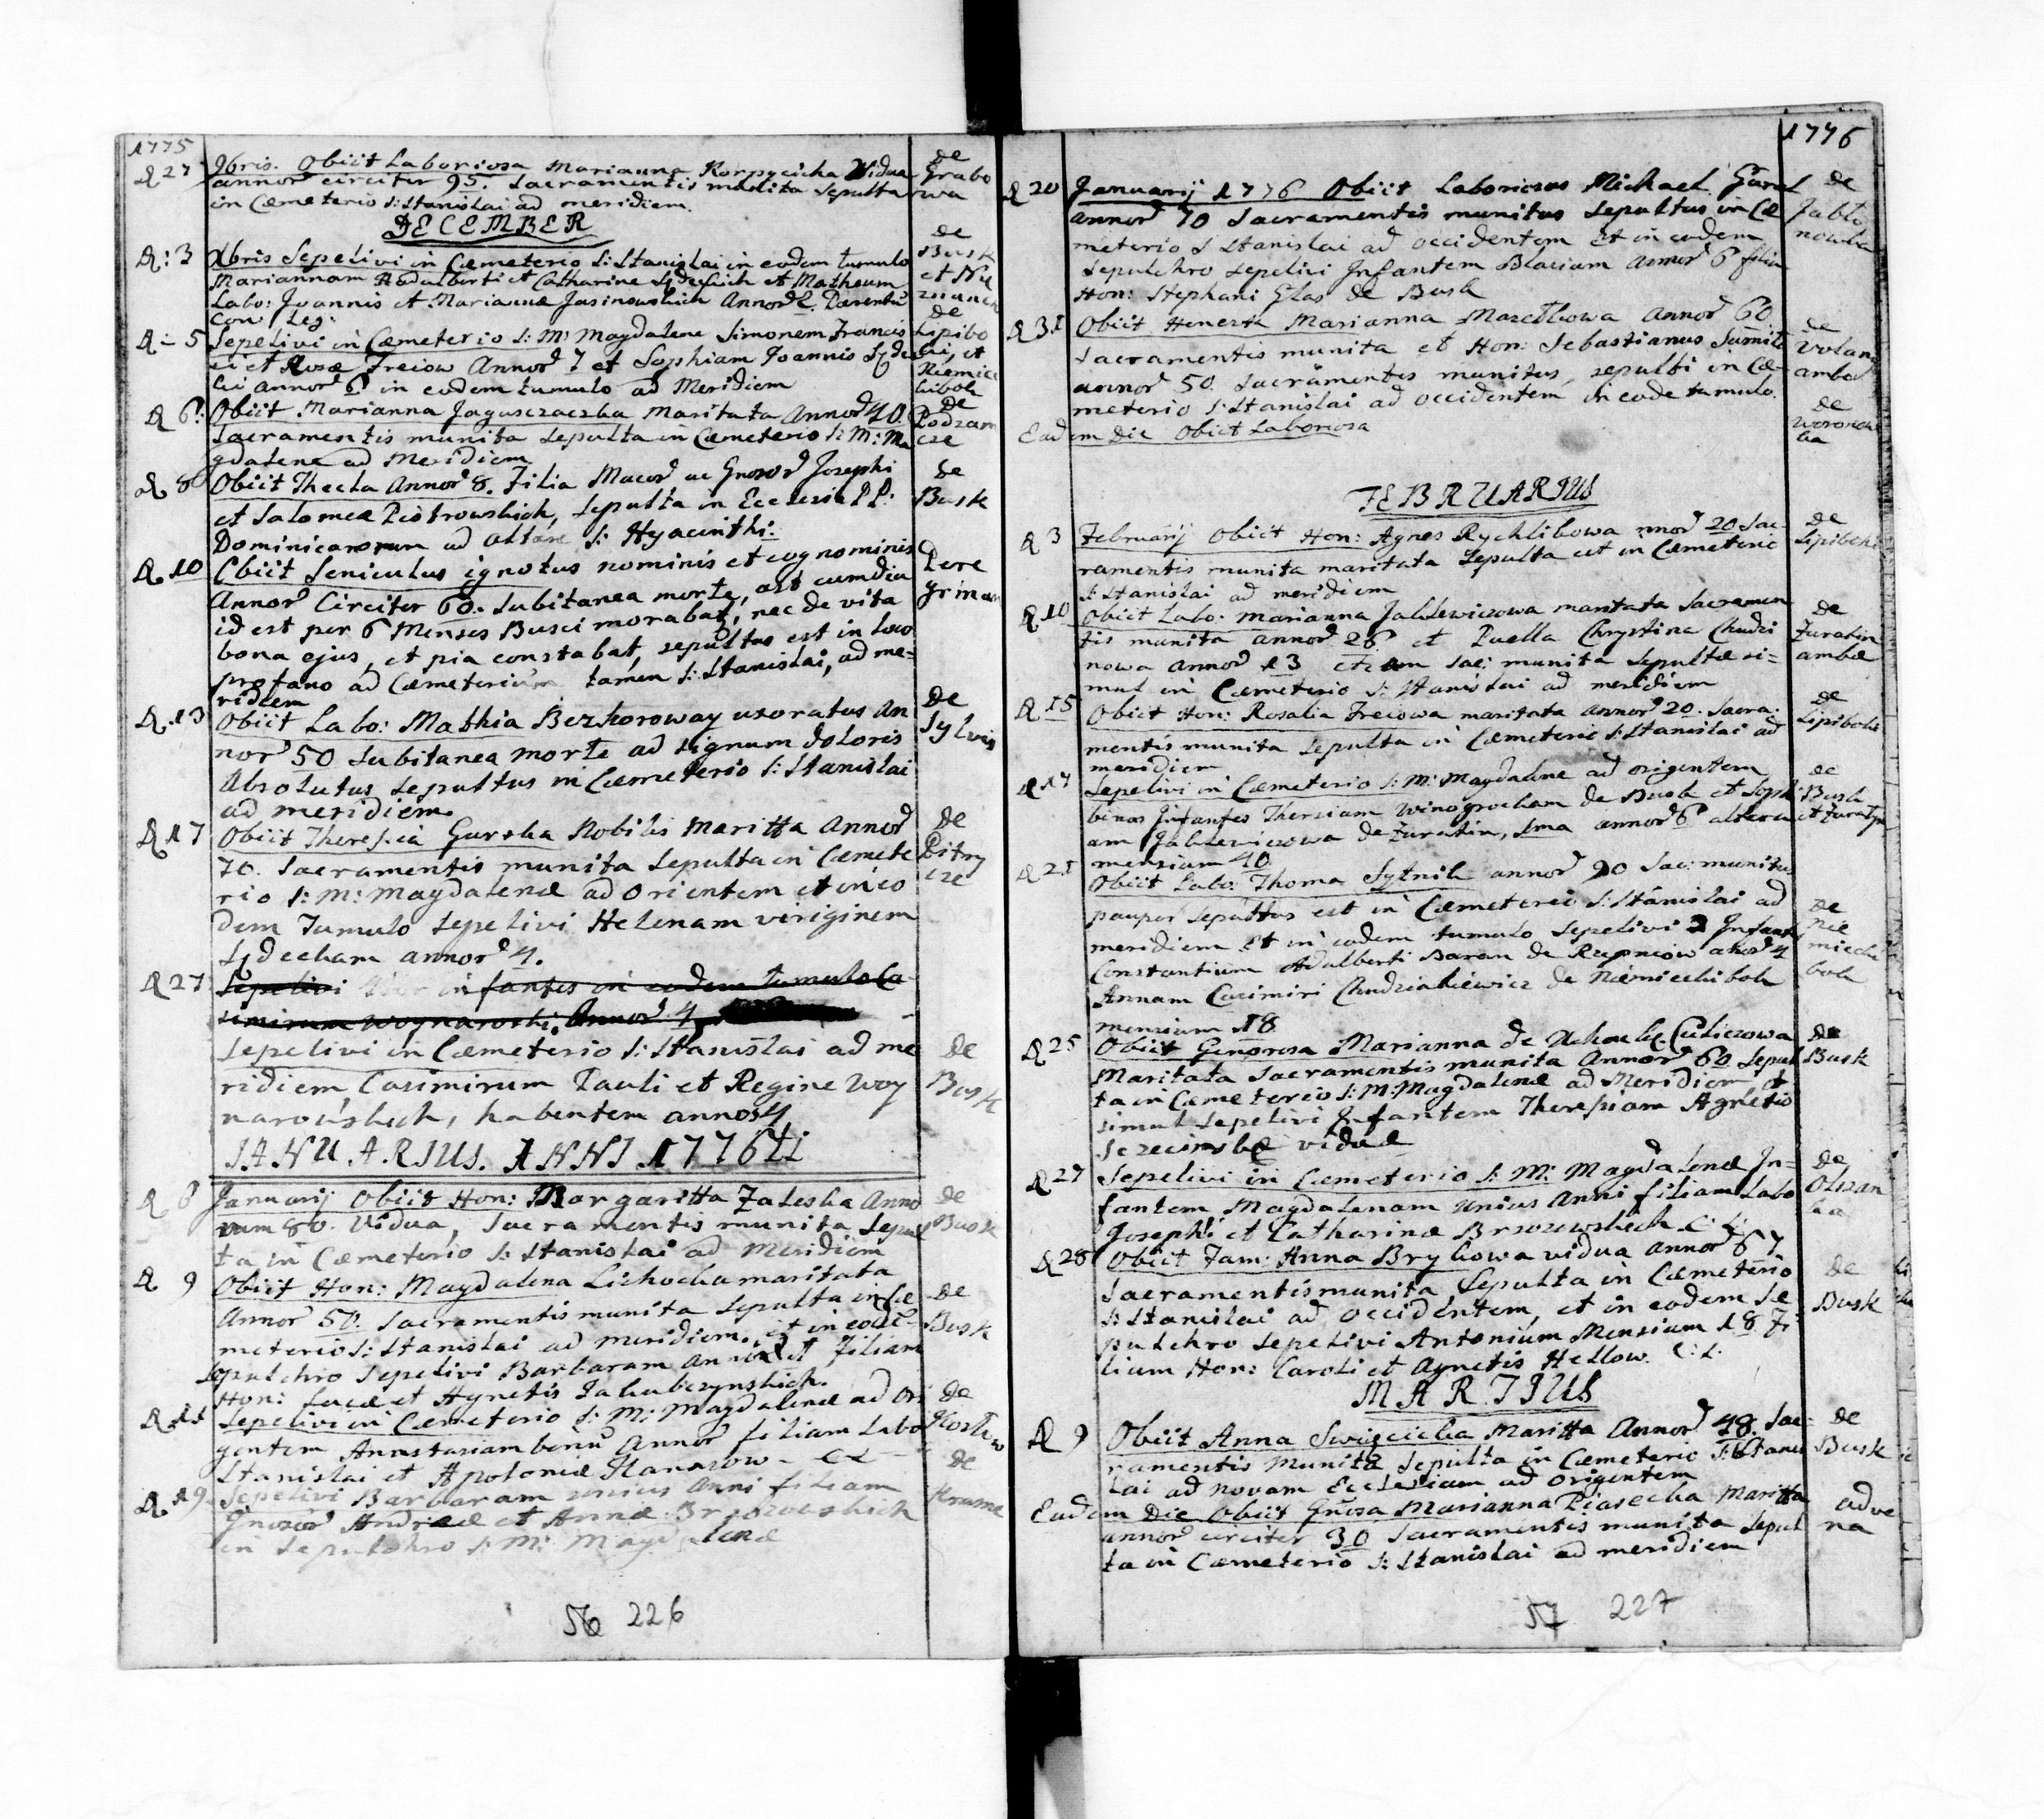 1775
D 27 9bris. Obiit Laboriosa Marianna Korpycicha Vidua de
annor circiter 95. Sacramentis munita sepulta Grabo
in Cæmeterio S: Stanislai ad meridiem. wa
DECEMBER
D: 3 Xbris Sepelivi in Cæmeterio S: Stanislai in eodem tumulo de Busk
Mariannam Adalberti et Catharinæ et Matheum et
Labo: Joannis et Mariannæ Jasinowskich Annor 2. Parentũ
Con: Leg:
D: 5 Sepelivi in Cæmeterio S: M: Magdalenæ Simonem Francis de Lipibo
ci et Rosæ Freiow Annor 7 et Sophiam Joannis ki, et
annor 6 in eodem tumulo ad Meridiem Niemic
D 6: Obiit Marianna Jagusczaczka Maritata Annor 40. de
Sacramentis munita Sepulta in Cæmeterio S: M: Ma Podzam
gdalenæ ad Meridiem cze
D 8 Obiit Thecla Annor 8. Filia Josephi de
et Salomeæ Piotrowskich, Sepulta in Ecclesia PP: Busk
Dominicanorum ad altare S: Hyacinthi:
D 10 Obiit Seniculus ignotus nominis et cognominis Pere
Annor Circiter 60. Subitanea morte, ast cum diu grinus
id est per 6 Menses Busci morabat, nec de vita
bona ejus, et pia constabat, sepultus est in loco
profano ad Cæmeterium tamen S: Stanislai, ad me=
ridiem
D. 13 Obiit Labo: Mathia Bezkoroway uxoratus An de
nor 50 Subitanea morte ad signum doloris Sylvis
Absolutus, sepultus in Cæmeterio S: Stanislai
ad meridiem.
D 17 Obiit Theresia Gurska Nobilis Maritta Annor de
70. Sacramentis munita Sepulta in Cæmete Pitry
rio S: M: Magdalenæ ad Orientem et in eo cze
dem Tumulo Sepelivi Helenam viriginem
annor 4.
D 27 Sepelivi infantes in eodem tumulo Ca
simirum Woynaroski, Annor 4
Sepelivi in Cæmeterio S: Stanislai ad me de
ridiem Casimirum Pauli et Reginæ Woy Busk
narowskich, habentem annos 4
JANUARIUS. ANNI 1776ti
D 6 Januarij Obiit Hon: Margaritta Zaleska Anno de
rum 80. Vidua, Sacramentis munita Sepul Busk
ta in Cæmeterio S: Stanislai ad Meridiem
D 9 Obiit Hon: Magdalena Lichocka maritata de
Annor 50. Sacramentis munita Sepulta in Cæ Busk
meterio S: Stanislai ad meridiem. et in eodẽ
sepulchro Sepelivi Barbaram Filiam
Hon: Lucæ et Agnetis Jakubczynskich.
D. 11 Sepelivi in Cæmeterio S: M: Magdalenæ ad Ori de
gentem Annastasiam Annor filiam Labo
Stanislai et Apoloniæ Hanasow - CL - de
D. 19 Sepelivi Barbaram unius Anni filiam Krasne
Andreæ et Annæ Brzozowskich
in Sepulchro S: M: Magdalenæ
56 226
1776
D 20 Januarij 1776 Obiit Laboriosus Michael Gural de
annor 70 Sacramentis munitus sepultus in Cæ Jablo
meterio S Stanislai ad occidentem et in eodem nowka
Sepulchro sepelivi Infantem Blasium Annor 6 filium
Hon: Stephani Glas de Busk
D 31 Obiit Honesta Marianna Marcelkowa Annor 60 de
Sacramentis munita et Hon: Sebastianus Volani
annor 50. Sacramentis munitus, sepulti in Cæ= ambo
meterio S: Stanislai ad occidentem in eode tumulo.
Eadem Die Obiit Laboriosa de
FEBRUARIUS
D 3 Februarij Obiit Hon: Agnes Rychlikowa nnor 20 Sac= de
ramentis munita maritata Sepulta est in Cæmeterio Lipiboki
S: Stanislai ad meridiem
D 10 Obiit Labo: Marianna Jablewiczowa maritata Sacramen de
tis munita annor 26 et Puella Chrystina Chudzi Zuratin
nowa annor 13 etiam Sac: munita Sepultæ si= ambæ
mul in Cæmeterio S: Stanislai ad meridiem
D 15 Obiit Hon: Rosalia Freiowa maritata annor 20. Sacra de
mentis munita Sepulta in Cæmeterio S: Stanislai ad Lipiboki
meridiem
D 17 Sepelivi in Cæmeterio S: M: Magdalinæ ad origentem de
binos Infantes Theresiam Winogrockam de Busk et Sophi Busk
am Jablewiczowa de Zuratin, Ima annor 6 altera et Zuratyn
mensium 10
D 21 Obiit Labo: Thoma Sytnik annor 90 Sac: munitus
pauper Sepultus est in Cæmeterio S: Stanislai ad de
meridiem et in eodem tumulo Sepelivi 2 Infantes Nie
Constantium Adalberti Baran de Rzepniow 4 miecki
Annam Casimiri Chudziakiewicz de Niemieckibok bok
mensium 18
D 25 Obiit Generosa Marianna de Culiczowa de
Maritata Sacramentis munita Annor 60 Sepul Busk
ta in Cæmeterio S: M: Magdalenæ ad Meridiem, et
simul Sepelivi Infantem Theresiam Agnetis
viduæ
D 27 Sepelivi in Cæmeterio S: M: Magdalenæ In= de
fantem Magdalenam Unius Anni filiam Labo Olszan
Josephi et Catharinæ Brzozowskich C: L: ka
D 28 Obiit Fam: Anna Brykowa vidua annor 67 de
Sacramentis munita, Sepulta in Cæmeterio Busk
S: Stanislai ad Occidentem, et in eodem Se
pulchro Sepelivi Antonium Mensium 18 Fi
lium Hon: Caroli et Agnetis Hellow. C: L:
MARTIUS
D 9 Obiit Anna Swięcicka Maritta Annor 48. Sac= de
ramentis Munita Sepulta in Cæmeterio S: Stanis Busk
lai ad novam Ecclesiam ad Origentem
Eadem Die Obiit Gnosa Marianna Piasecka Maritta adve
annor circiter 30 Sacramentis munita Sepul na
ta in Cæmeterio S: Stanislai ad meridiem
57 227